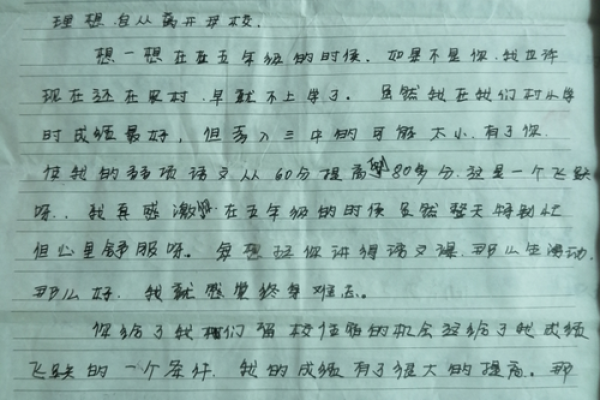 理想自从离开母校.
想一想在在五年级的时候.如果不是你.我也许
现在还在农村.早就不上学了.虽然我在我们村小学
时成绩最好,但考入三中的可能太小.有了你.
使我的弱项语文从60分提高到80多分.这是一个飞跃
呀..我真感激你.在五年级的时候虽然整天特别忙
但心里舒服呀。每想起你讲得语文课.那么生动.
那么好.我就感觉终身难忘。
你给了我们留校住宿的机会这给了我成绩
飞跃的一个条件.我的成绩有了很大的提高。那